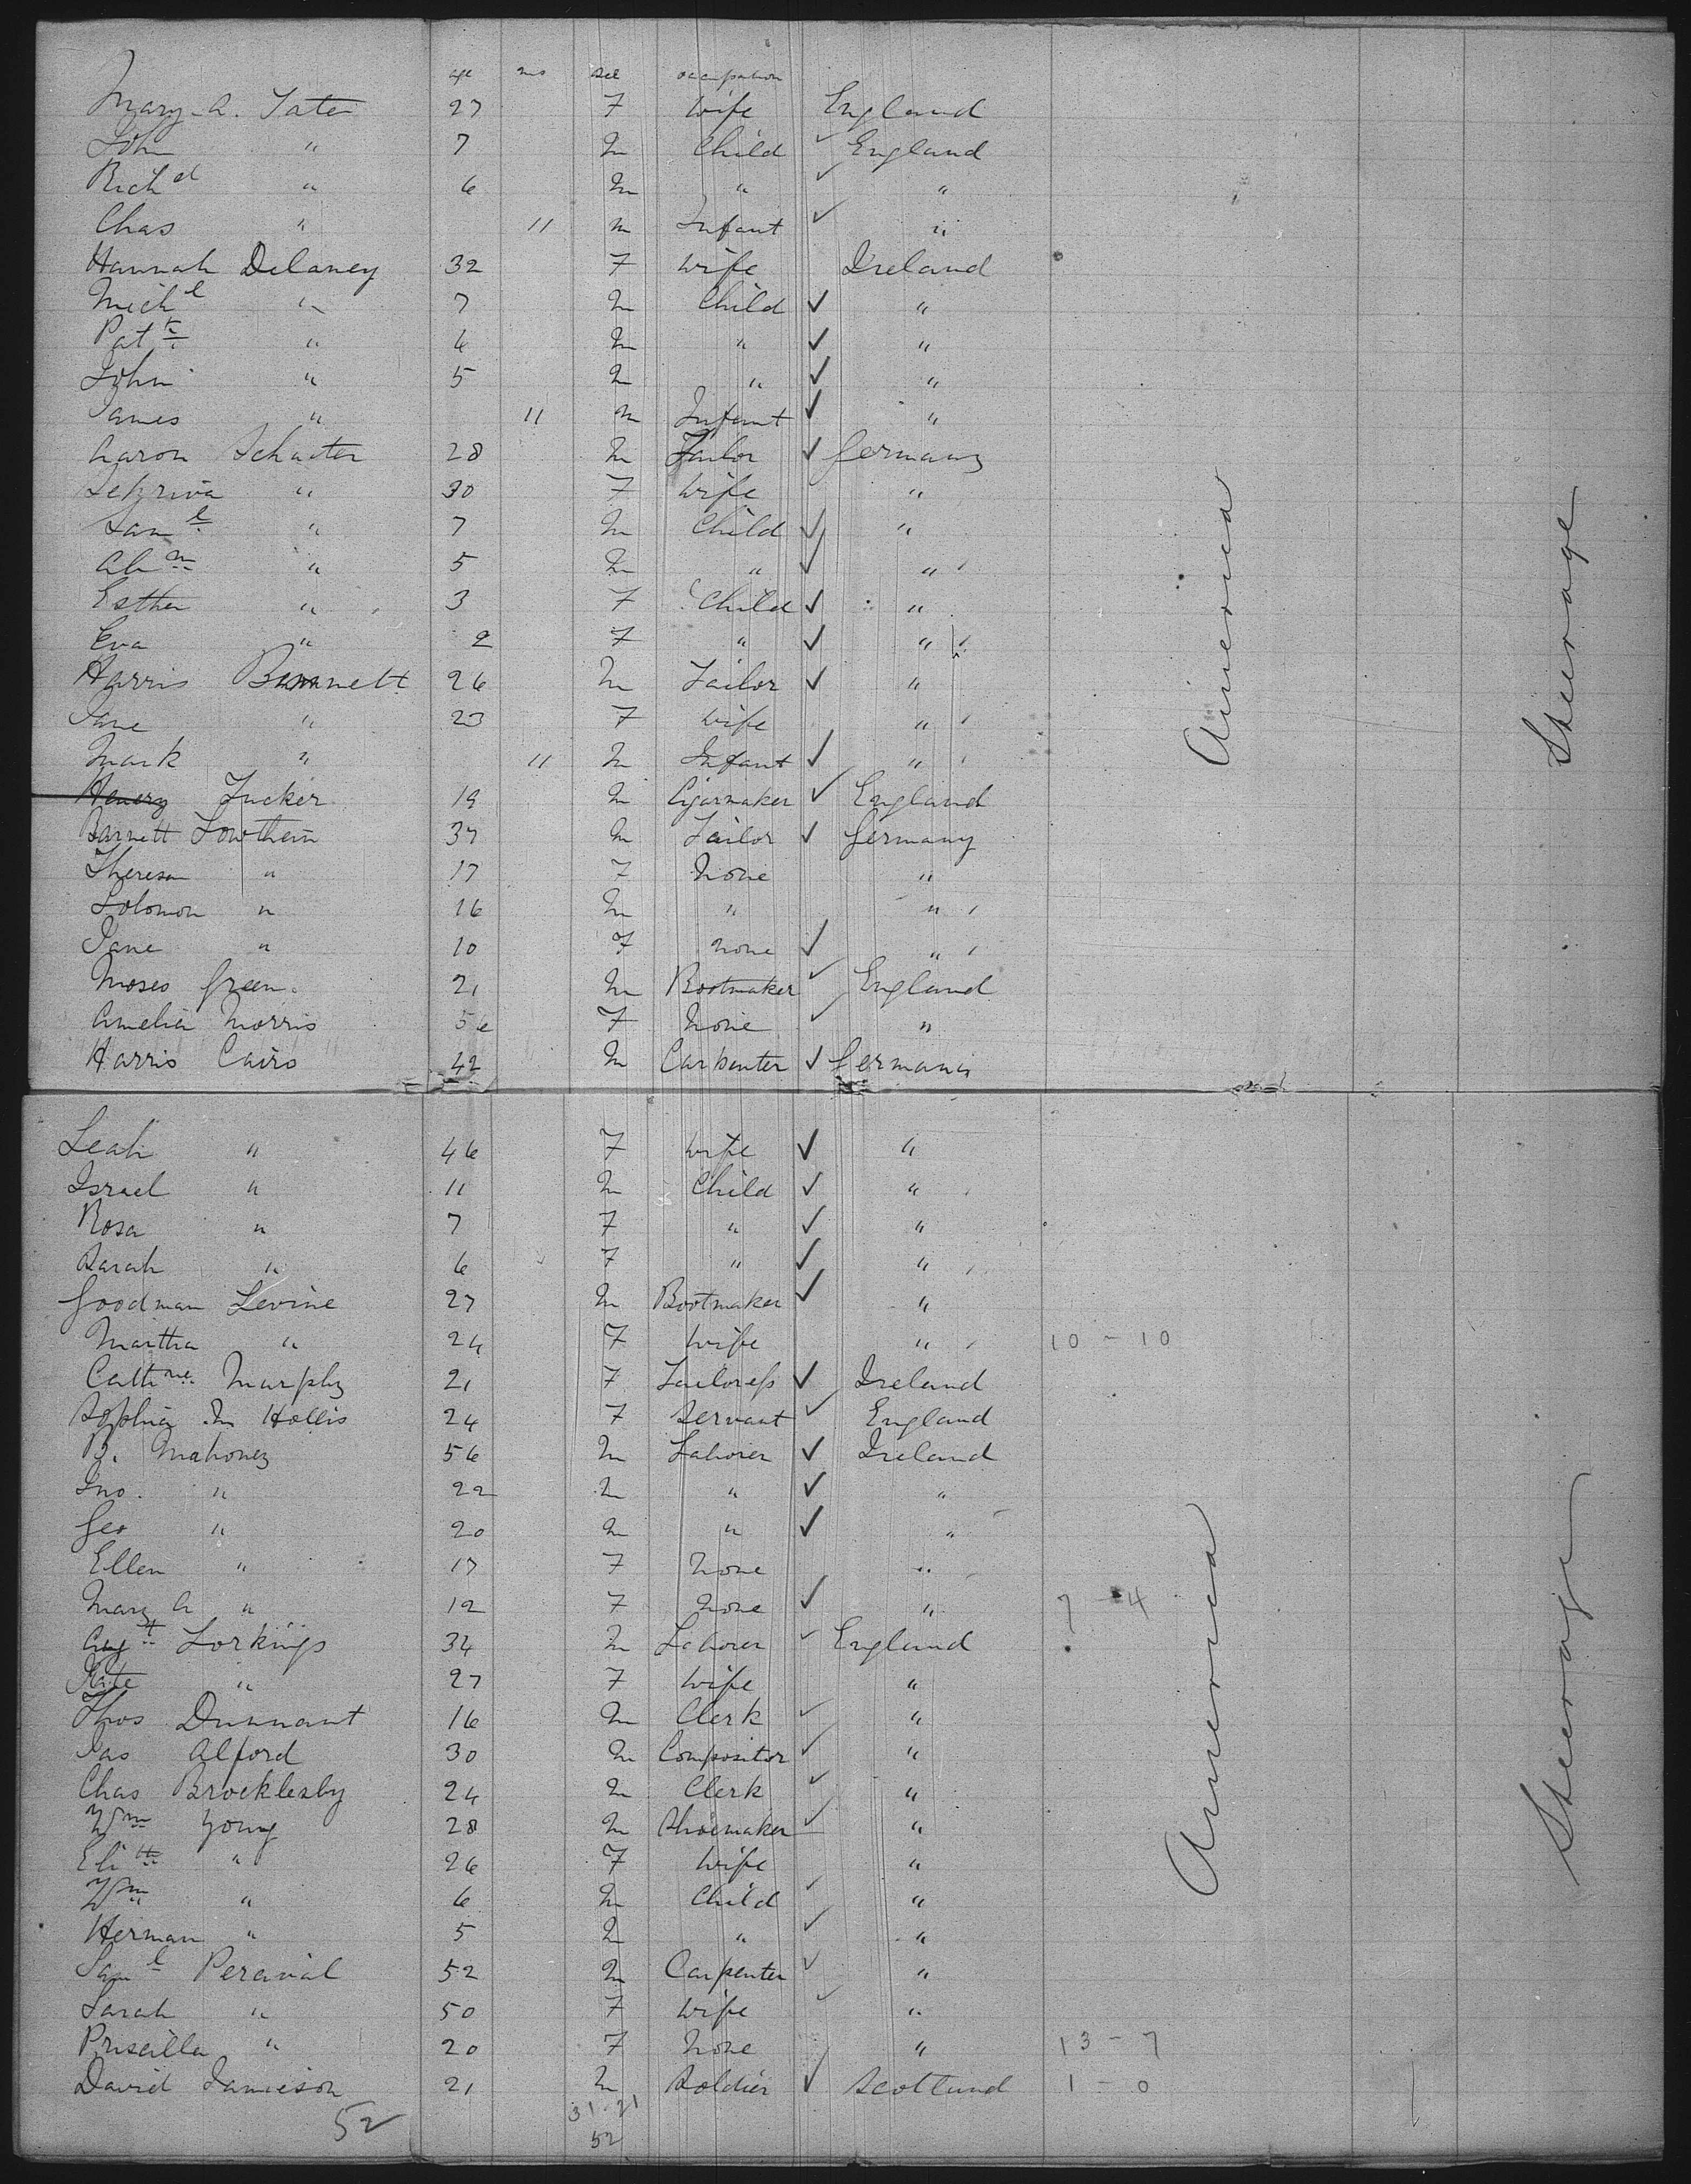 age mos sex occupation
Mary A. Tate 27 F Wife England
John " 7 M Child ✓ England
Rich d " 6 M " ✓ "
Chas " 11 M Infant ✓ "
Hannah Delaney 32 F Wife Ireland
Mich l " 7 M Child ✓ "
Pat k " 6 M " ✓ "
John " 5 M " ✓ "
James " 11 M Infant ✓ "
Aaron Schacter 28 M Tailor ✓ Germany
" 30 F Wife "
Sam l " 7 M Child ✓ "
Ab m " 5 M " ✓ "
Esther " 3 F Child ✓ "
Eva " 2 F " ✓ "
Harris 26 M Tailor ✓ "
Jane " 23 F Wife "
Mark " 11 M Infant ✓ "
Henery Tucker 19 M Cigarmaker ✓ England
Barnett Lowthein 37 M Tailor ✓ Germany
Theresa " 17 F None "
Solomon " 16 M " "
Jane " 10 F None ✓ "
Moses Green 21 M Bootmaker ✓ England
Amelia Morris 56 F None ✓ "
Harris Cairo 42 M Carpenter ✓ Germany
America
Steerage
Leah " 46 F Wife ✓ "
Israel " 11 M Child ✓ "
Rosa " 7 F " ✓ "
Sarah " 6 F " ✓ "
Goodman Levine 27 M Bootmaker ✓ "
Martha " 24 F Wife " 10 - 10
Cath ne Murphy 21 F Tailoress ✓ Ireland
Sophia M Hollis 24 F Servant ✓ England
B. Mahoney 56 M Laborer ✓ Ireland
Jno. " 22 M " ✓ "
Geo " 20 M " ✓ "
Ellen " 17 F None "
Mary A " 12 F None ✓ " 7 - 4
Aug t Lorkings 34 M Laborer ✓ England
Kate " 27 F Wife "
Thos Dunnant 16 M Clerk ✓ "
Jas Alford 30 M Compositor ✓ "
Chas Brocklesby 24 M Clerk ✓ "
Wm Young 28 M Shoemaker ✓ "
Eli th " 26 F Wife "
Wm " 6 M Child ✓ "
Herman " 5 M " ✓ "
Sam l Percival 52 M Carpenter ✓ "
Sarah " 50 F Wife ✓ "
Priscilla " 20 F None " 13 - 7
David Jamieson 21 M Soldier ✓ Scotland 1 - 0
America
Steerage
52 31 - 21
52